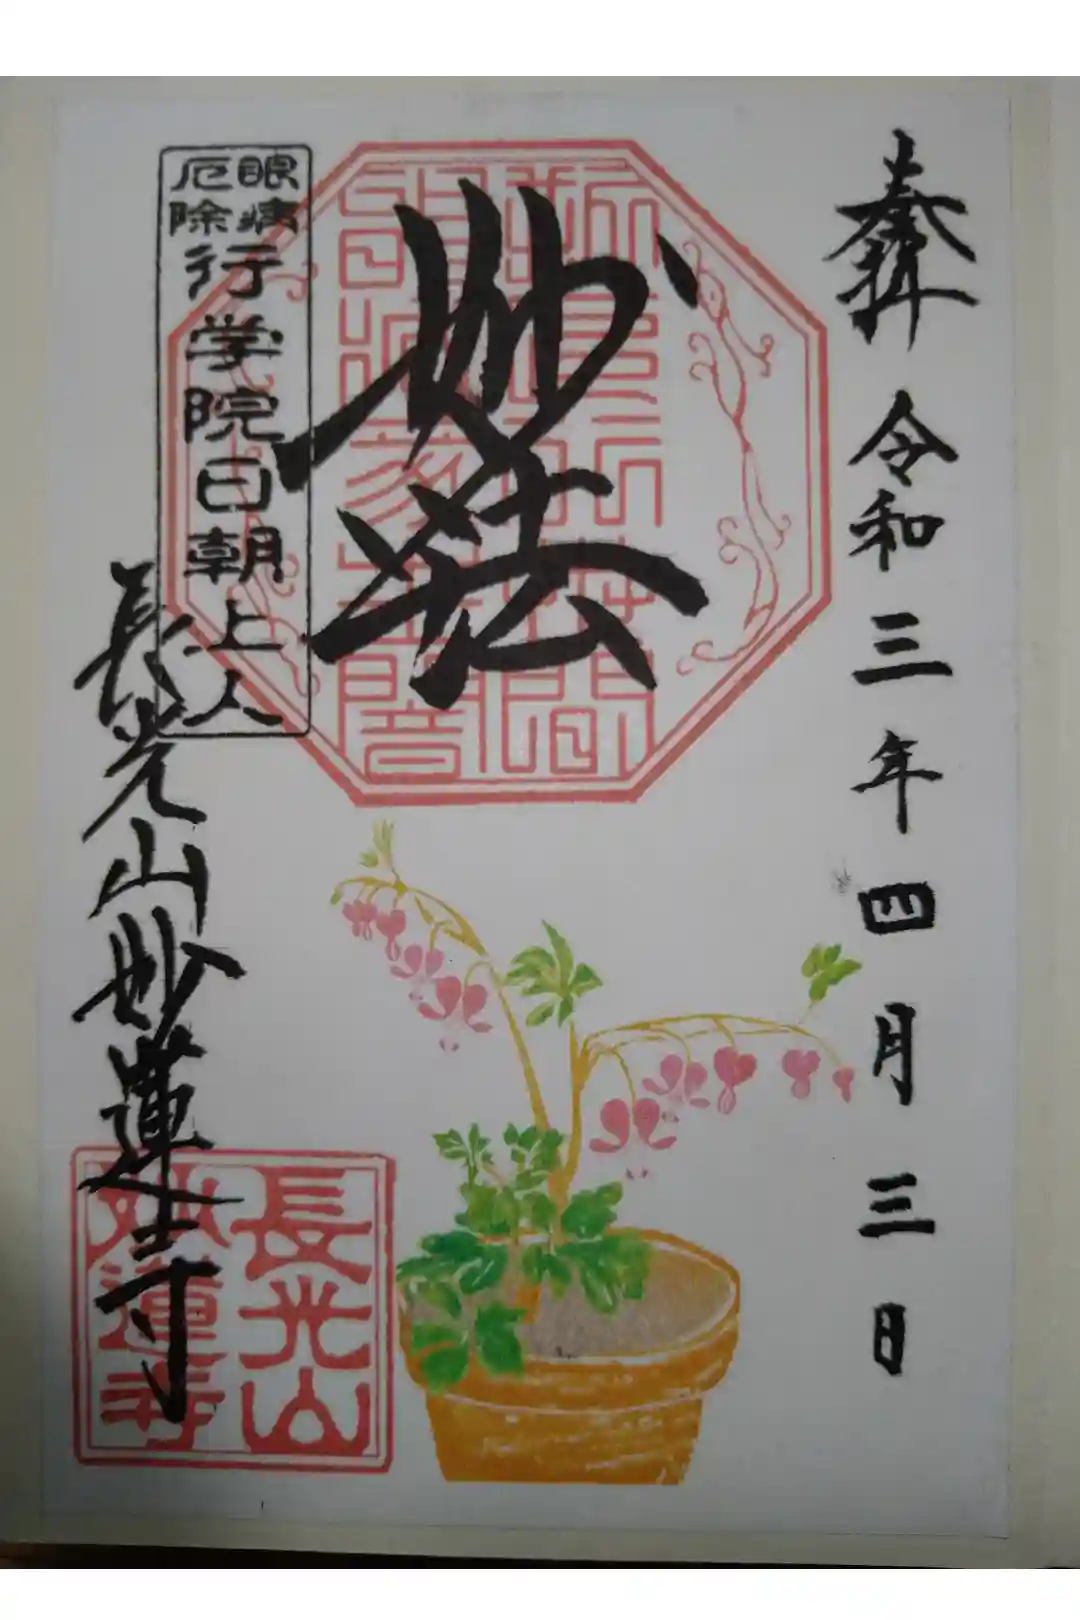 奉拝
令和三年四月三日
妙法
眼病
厄除
行学院日朝上人
長光山妙蓮寺
長光山
妙蓮寺